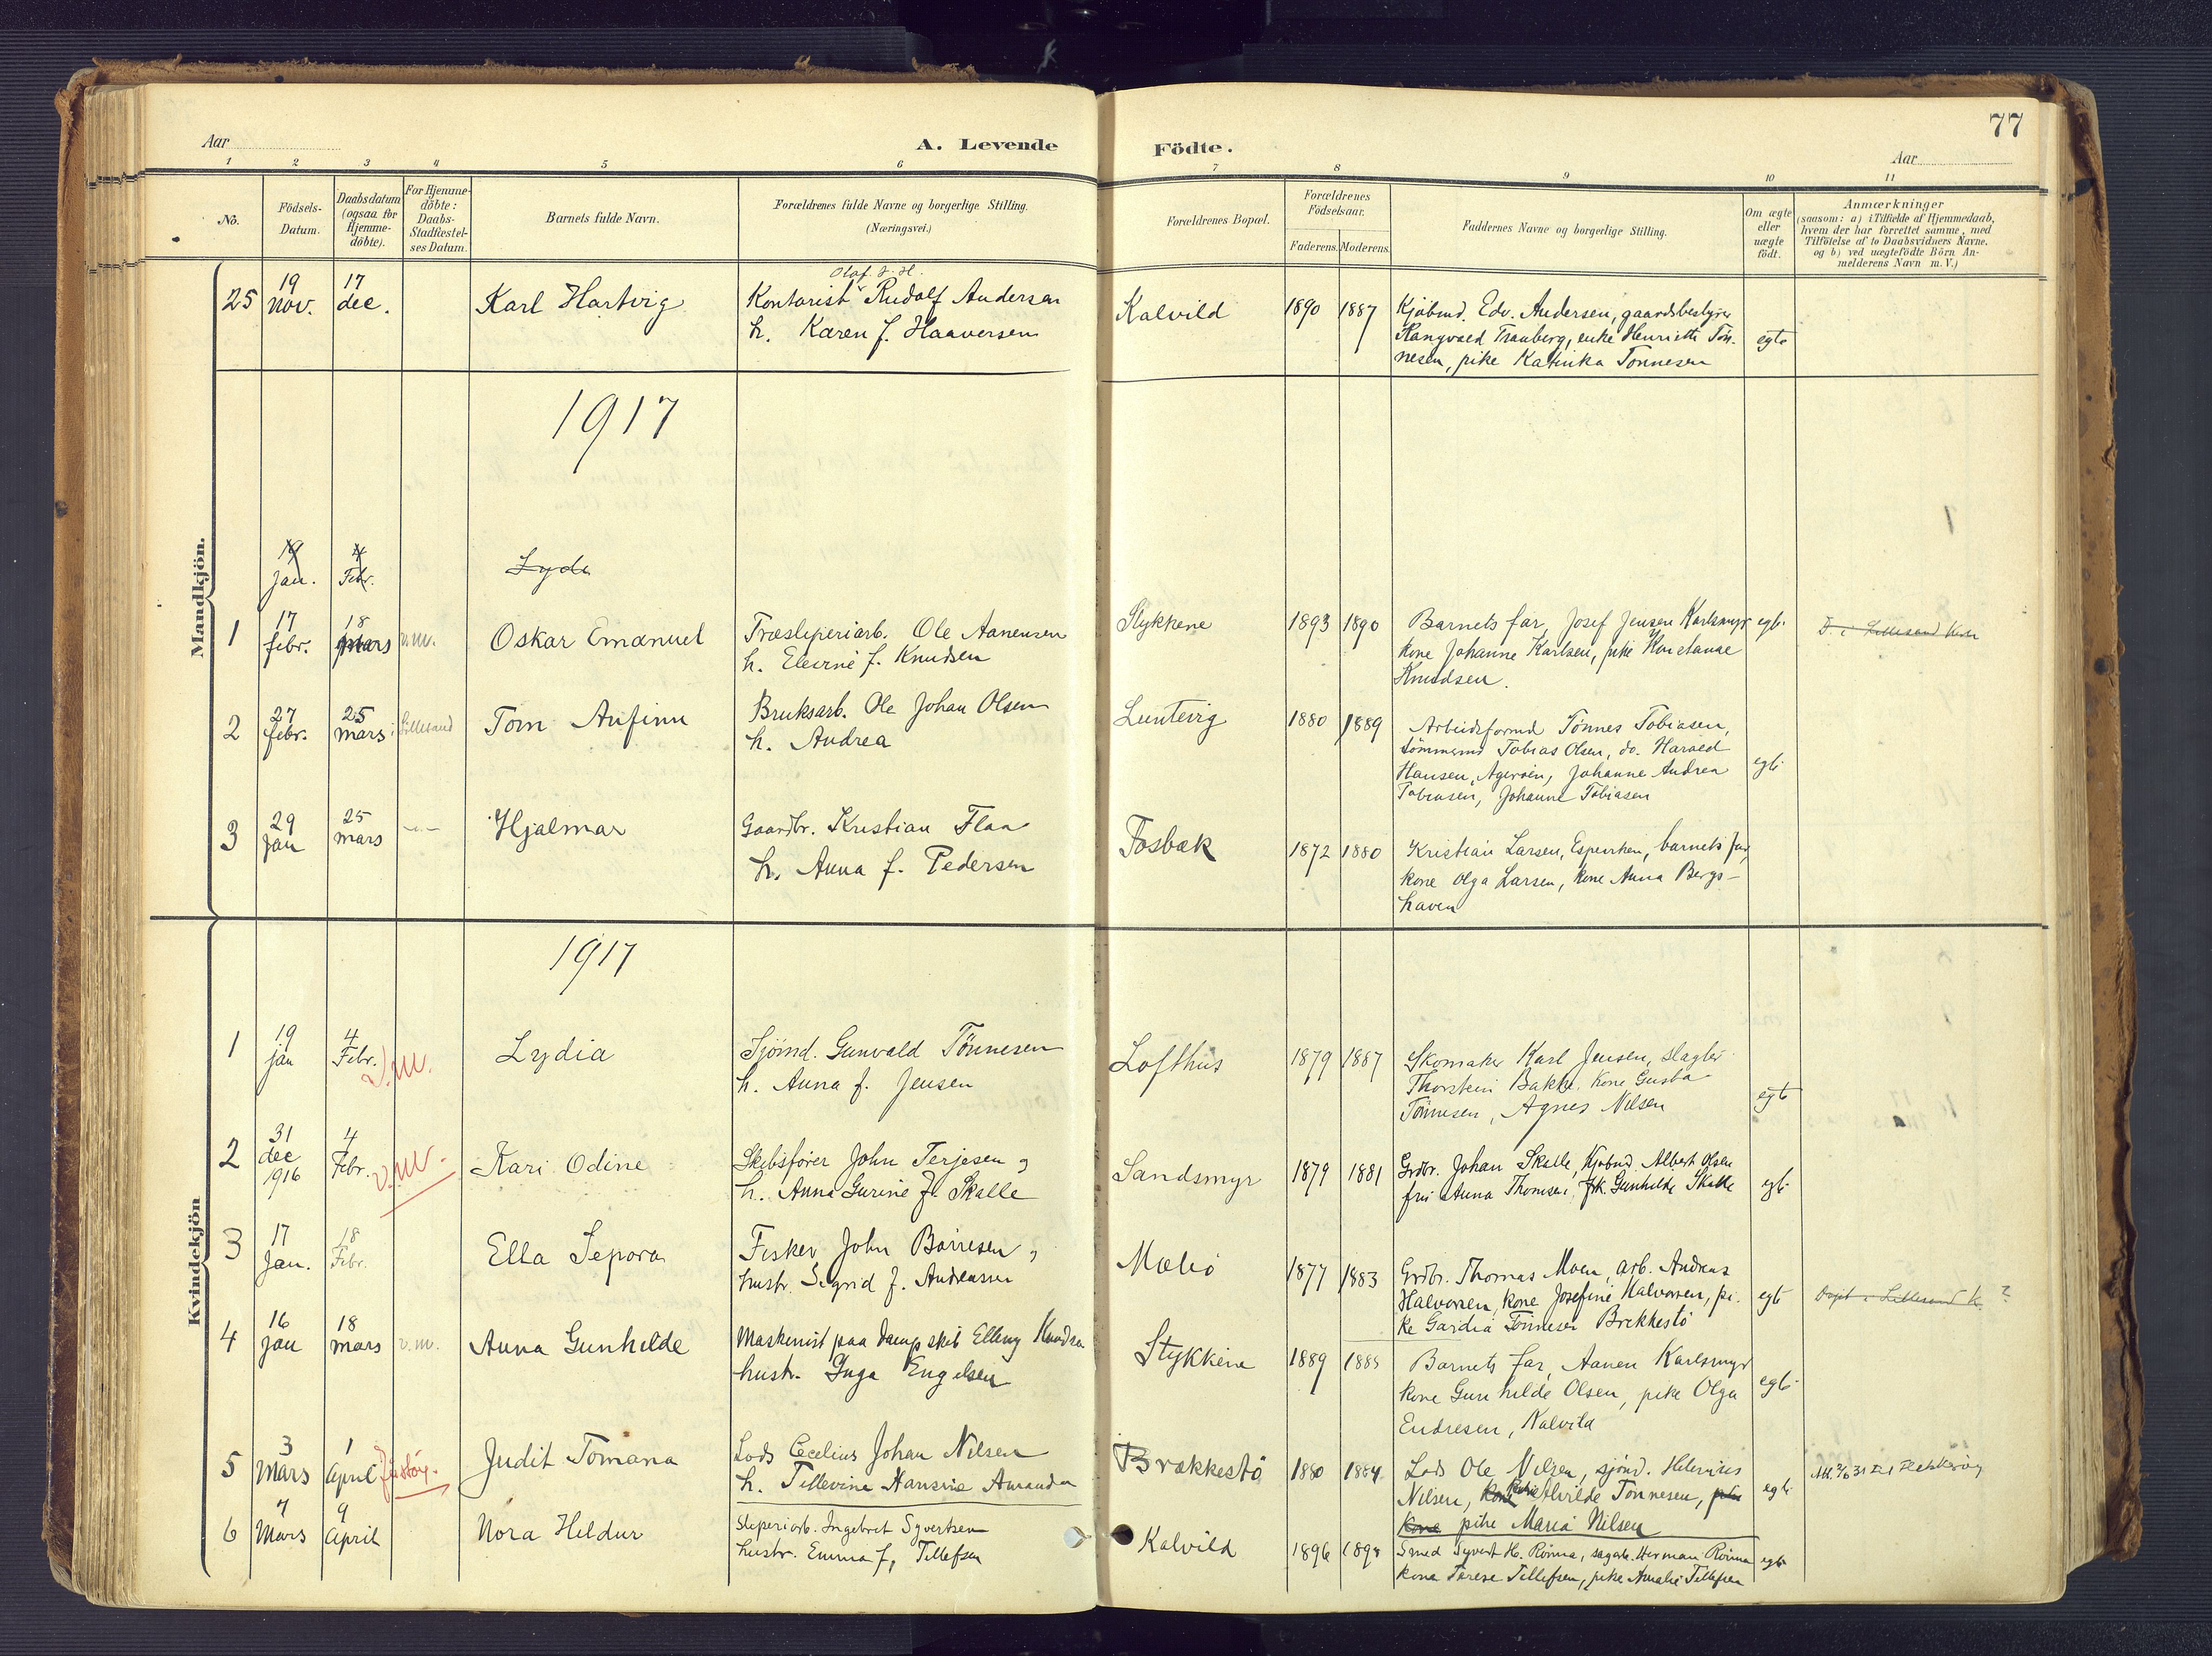 77
Aar
A. Levende
Födte.
Aar
1 2 3 4 5 6 7 8 9 10 11
No.
Födsels-Datum.
Daabsdatum (ogsaa for Hjemme-döbte).
For Hjemme-döbte: Daabs-Stadfæstel-ses Datum.
Barnets fulde Navn.
Forældrenes fulde Navne og borgerlige Stilling.
(Næringsvei.)
Forældrenes Bopæl.
Forældrenes Födselsaar.
Faderens. Moderens.
Faddernes Navne og borgerlige Stilling.
Om ægte eller uægte födt.
Anmærkninger
(saasom: a) i Tilfælde af Hjemmedaab,
hvem der har forrettet samme, med
Tilföielse af to Daabsvidners Navne.
og b) ved uægtefödte Börn An-
melderens Navn m. V.)
Mandkjön.
25 19 nov. 17 dec. Karl Hartvig
Olaf. H.
Kontorist Rudolf Andersen
h. Karen f. Haaversen
Kalvild 1890 1887
Kjøbmd. Edv. Andersen, gaardsbestyrer
Rangvald Tranberg, enke Henriette Tøn-
nesen, pike Katinka Tønnesen
egte
1917
19 Jan. 4 Febr. Lydi
1 17 febr. 18 mars v.m. Oskar Emanuel
Træsliperiarb. Ole Aanensen
h. Elevine f. Knudsen
Stykkene 1893 1890
Barnets far, Josef Jensen Karlsmyr
kone Johanne Karlsen, pike Konstanse
Knudsen.
egt.
D. i Lillesand Kirke
2 27 febr. 25 mars i Lillesand Tom Anfinn
Bruksarb. Ole Johan Olsen
h. Andrea
Luntevig 1880 1889
Arbeidsformd Tønnes Tobiasen,
tømmermd Tobias Olsen, do. Harald
Hansen, Agerøen, Johanne Andrea
Tobiasen, Johanne Tobiasen
egt.
3 29 Jan 25 mars -"- Hjalmar
Gaardbr. Kristian Flaa
h. Anna f. Pedersen
Fosbæk 1872 1880
Kristian Larsen, barnets far,
kone Olga Larsen, kone Anna Bergs-
haven
Kvindekjön
1917
1 19 jan 4 Febr. v.m. Lydia
Sjømd. Gunvald Tønnesen
h. Anna f. Jensen
Lofthus 1879 1887
Skomaker Karl Jensen, slagter
Thorstein Bakke, Kone Gusta
Tønnesen, Agnes Nilsen
egt
2 31 dec 1916 4 Febr. v.m. Kari Odine
Skibsfører John Terjesen,
h. Anna Gurine f. Skalle
Sandsmyr 1879 1881
Grdbr. Johan Skalle, Kjøbmd. Albert Olsen
fru Anna Thomsen, frk. Gunhilde Skalle
egt.
3 17 Jan. 18 Febr. Ella Sepora
Fisker John Børresen,
hustr. Sigrid f. Andreassen
Mæbø 1877 1883
Grdbr. Thomas Moen, arb. Andreas
Halvorsen, kone Josefine Halvorsen, pi-
ke Gardia Tønnesen Brækkestø
egt.
Døpt i Lillesand K. ?
4 16 jan 18 mars v.m. Anna Gunhilde
Maskinist paa dampskib Elling Knudsen
hustr. Inga Engelsen
Stykkene 1889 1885
Barnets far, Aanen Karlsmyr
kone Gunhilde Olsen, pike Olga
Endresen, Kalvild
egt.
5 3 Mars 1 April Justøy. Judit Tomana
Lods Cecelius Johan Nilsen
h. Tellevine Hansine Amanda
Brækkestø 1880 1884
Lods Ole Nilsen, sjømd. Helenius
Nilsen, kone Alvilde Tønnesen,
kone pike Maria Nilsen
egt.
6 7 Mars 9 April Nora Hildur
Sliperiarb. Ingebret Syvertsen
hustr. Emma f. Tellefsen
Kalvild 1896 1898
Smed Syvert H. Rønna, sagarb. Herman Rønna
kone Terese Tellefsen, pike Amalie Tellefsen
egt.